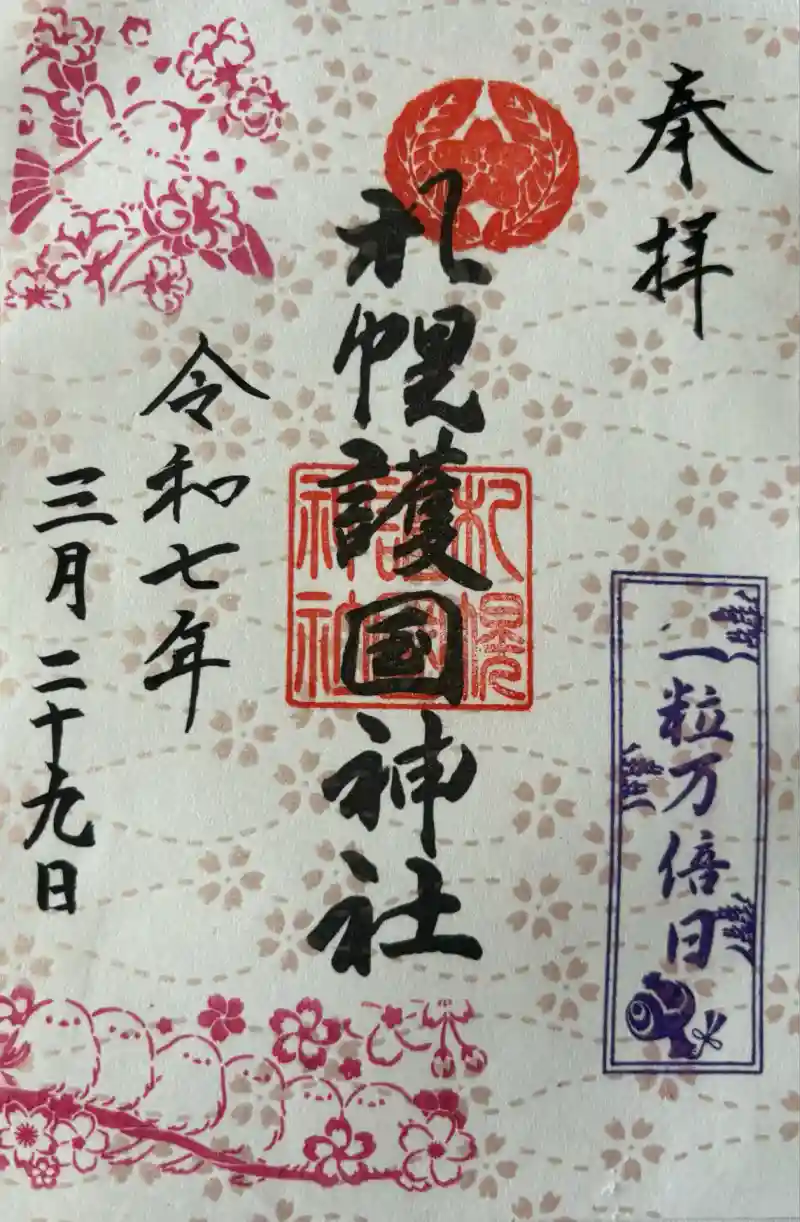 奉拝
札幌護国神社
札幌
護国
神社
一粒万倍日
令和七年
三月二十九日